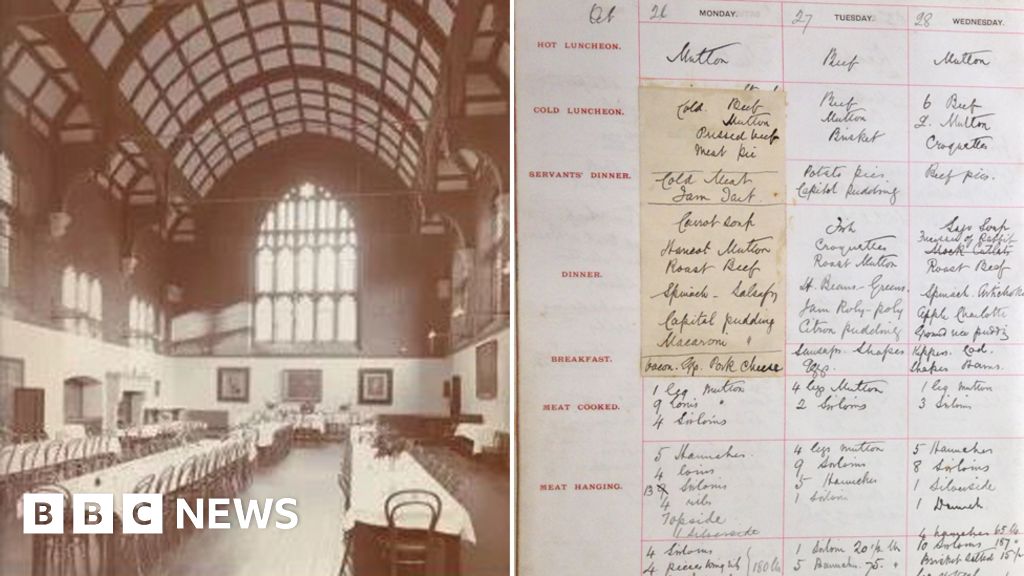 Oct 26 MONDAY. 27 TUESDAY. 28 WEDNESDAY.
HOT LUNCHEON.
Mutton
Beef
Mutton
COLD LUNCHEON.
Cold Beef
Mutton
Pressed beef
Meat pie
Beef
Mutton
Brisket
6 Beef
2. Mutton
Croquettes
SERVANTS' DINNER.
Cold Meat
Jam Tart.
Potato pies.
Capitol pudding
Beef pies.
DINNER.
Carrot soup
Haricot Mutton
Roast Beef
Spinach - Salsafy
Capital pudding
Macaroni "
Fish
Croquettes
Roast Mutton
Ht Beans - Greens.
Jam Roly-poly
Citron pudding
Sago Soup
of Rabbit
Mock Cutlets
Roast Beef
Spinach Artichoke
Apple Charlotte
Ground rice pudding
BREAKFAST.
Bacon. Egg. Pork Cheese
Sausages. Shapes
Eggs.
Kippers. Cod.
Shapes Hams.
MEAT COOKED.
1 Leg Mutton
9 Loins "
4 Sirloins
4 leg Mutton
2 Sirloins
1 leg mutton
3 Sirloin
MEAT HANGING.
5 Haunches.
4 loins
13 Sirloins
4 ribs
Topside
1 Silverside
4 legs mutton
9 Sirloins
5 Haunches
1 Sirloin
5 Haunches
8 Sirloins
1 Silverside
1 Haunch.
4 Sirloins
4 pieces 180 lbs
1 Sirloin 20½ lb
5 Haunches. 75. "
4 haunches 65 lbs
10 Sirloins 157 "
Brisket Salted 15
BBC NEWS